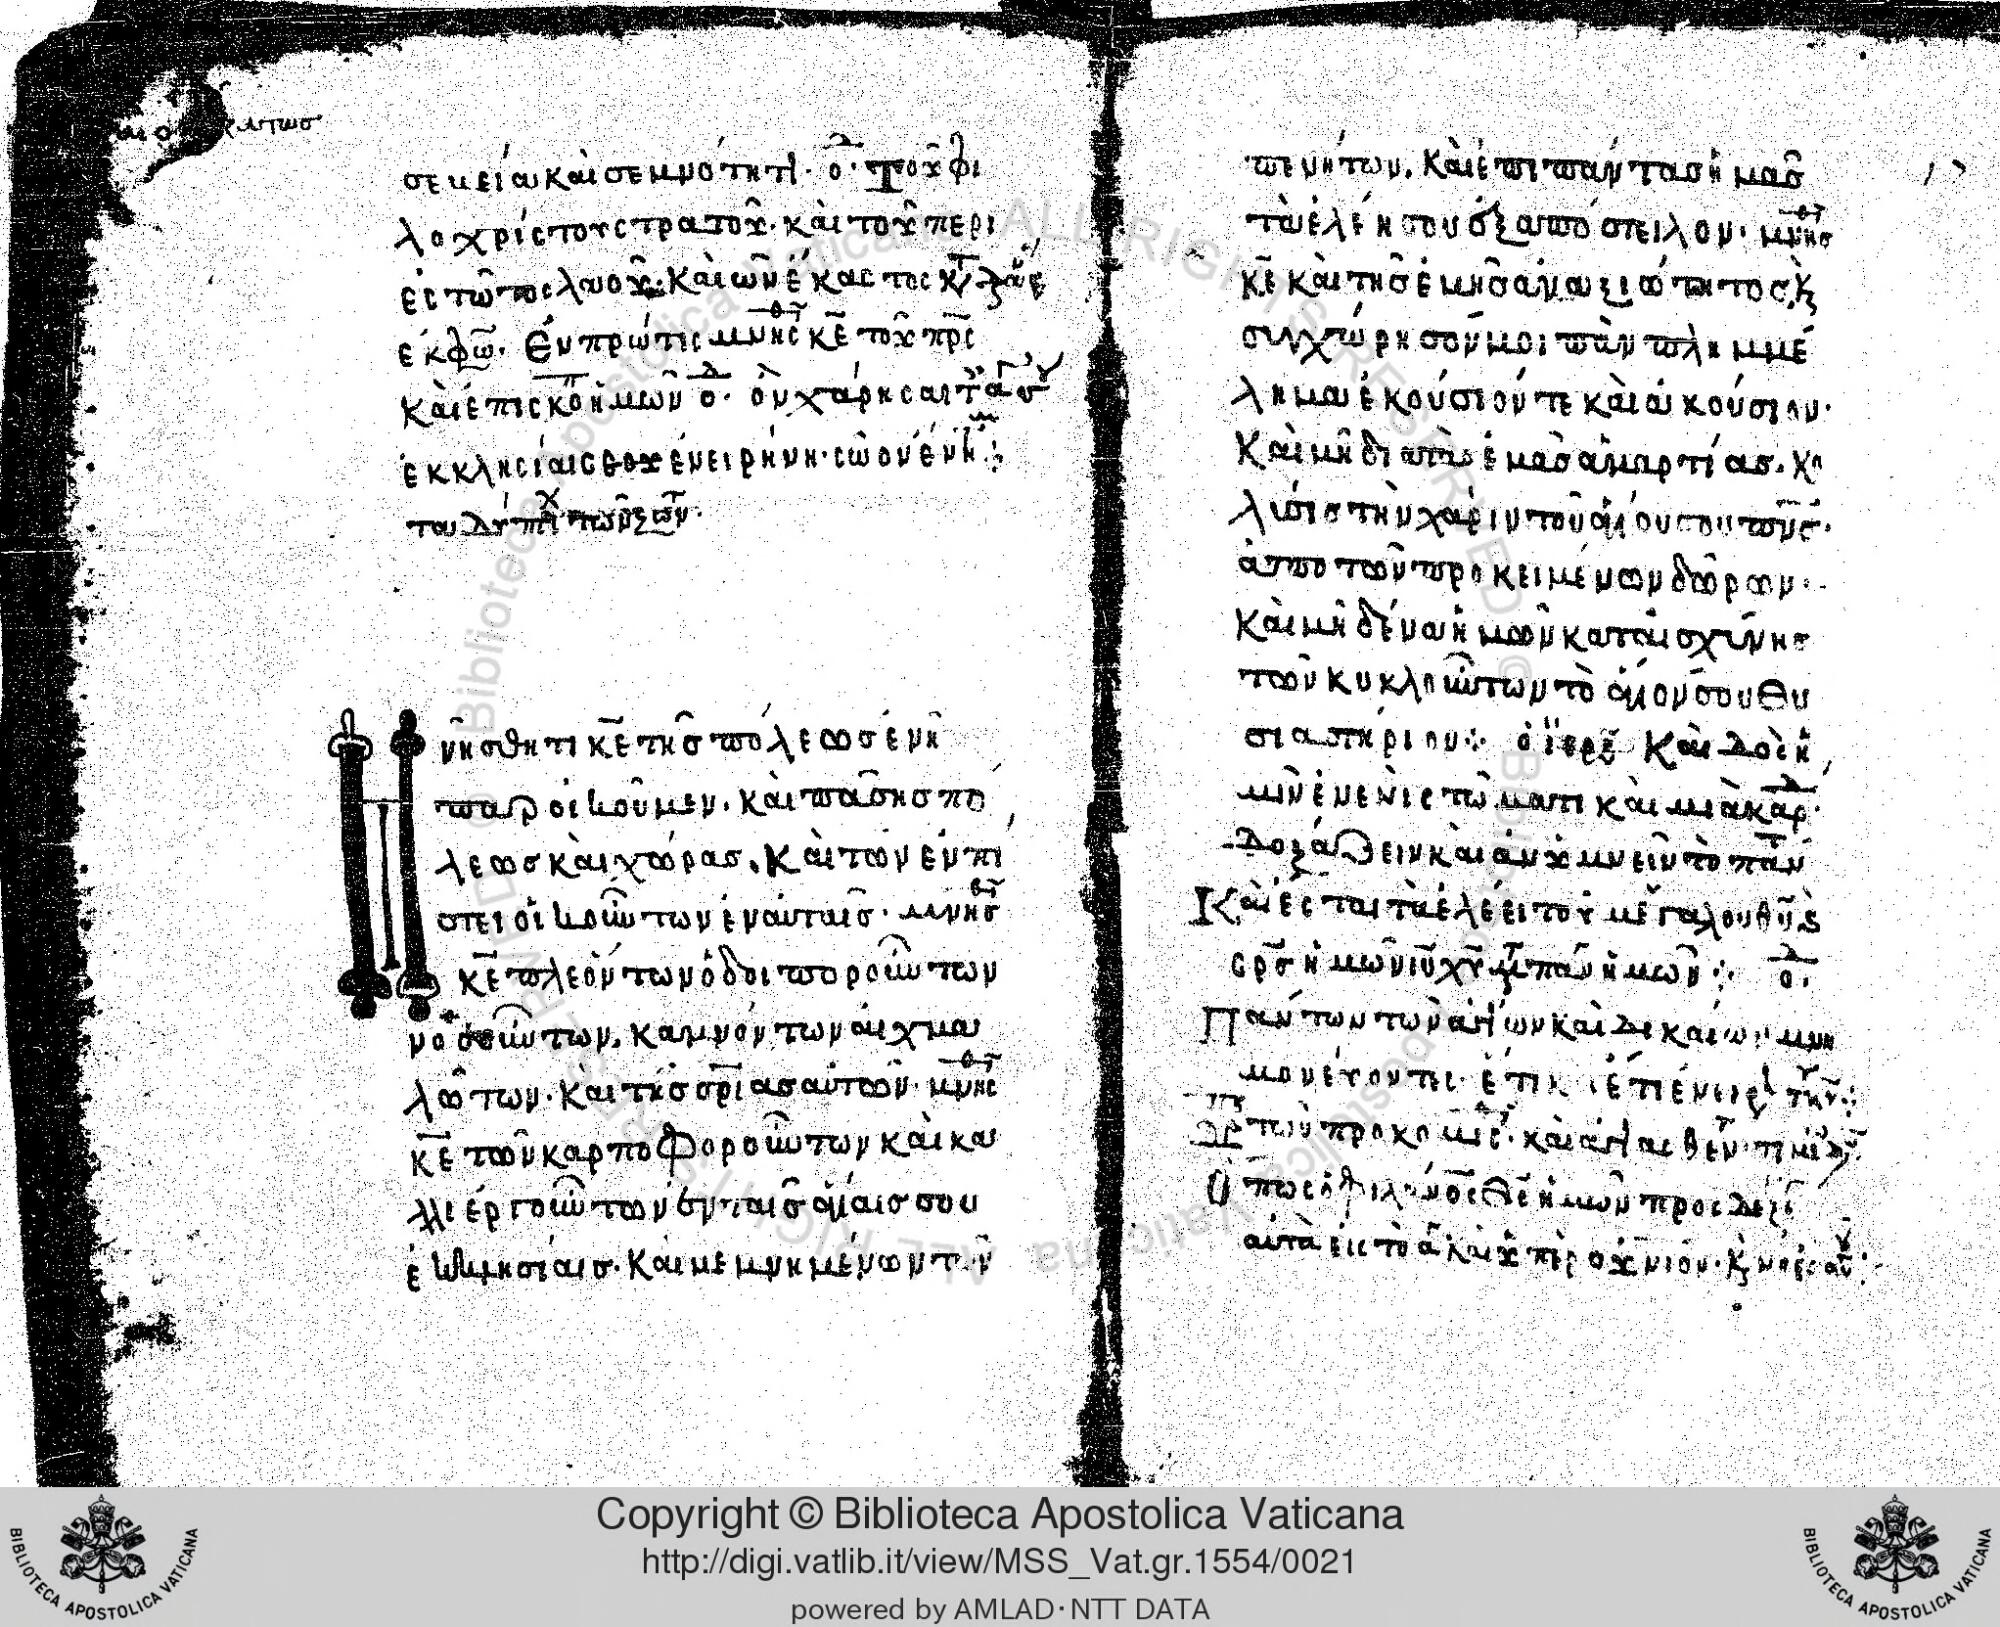 σεμνεία καὶ σεμνότητι· ὁ· Τοῦ φι
λοχρίστου στρατοῦ· καὶ τοῦ περι
εστῶτος λαοῦ· Καὶ ὧν ἕκαστος
ἐκφω· Ἐν πρώτοις μνης κε τοῦ πρς
καὶ ἐπισκο ἡμῶν ὁ· ὃν χάρησαι τ
ἐκκλησίαις σου ἐν εἰρήνη· σῶον ἔν
τὰ δύπτιχ τῶν ζων·
νήσθητι κε τῆς πόλεως ἐν ῇ
παροικοῦμεν· καὶ πάσης πό
λεως καὶ χώρας· Καὶ τῶν ἐν πί
στει οἰκούντων ἐν αὐταῖς· μνησ
κε πλεόντων ὁδοιπορούντων
νοσούντων, καμνόντων αἰχμα
λώτων· καὶ τῆς σρίας αὐτῶν· μνης
κε τῶν καρποφορούντων καὶ κα
λλιεργούντων ἐν ταῖς ἁγίαις σου
ἐκκλησίαις· Καὶ μεμνημένων τῶν
πενήτων, Καὶ ἐπὶ πάντας ἡμᾶς
τὰ ἐλέη σου ἐξαπόστειλον· μνησ
κε καὶ τῆς ἐμῆς ἀναξιότητος, κ
συγχώρησόν μοι πᾶν πλημμέ
λημα ἑκούσιόν τε καὶ ἀκούσιον·
Καὶ μὴ διὰ τὰς ἐμὰς ἁμαρτίας· κω
λύσις τὴν χάριν τοῦ ἁγίου σου πνς·
ἀπὸ τῶν προκειμένων δώρων·
Καὶ μηδένα ἡμῶν καταισχύνης
τῶν κυκλούντων τὸ ἅγιόν σου θυ
σιαστήριον· ὁ ἱερε Καὶ δὸς ἡ
μῖν ἐν ἑνὶ στώματι καὶ μιᾶ καρ·
δοξάζειν καὶ ἀνυμνεῖν τὸ παν
Καὶ ἔσται τὰ ἐλέει τοῦ μεγάλου θυ κ
σρς ἡμῶν ιυ χυ μ παν ἡμῶν· ὁ·
Πάντων τῶν ἁγίων καὶ δικαίων μνη
μονεύοντες· ἔτι κ ἔτι ἐν εἰρ τ
τῶν προκομις· καὶ ἁγιασθεν· τιμι
Ὅπως ὁ φιλανος θς ἡμῶν προσδεξ
αὐτὰ εἰς τὸ ἅγ καὶ ὑπερουνιον· κ νοερ αὐ
Copyright © Biblioteca Apostolica Vaticana
http://digi.vatlib.it/view/MSS_Vat.gr.1554/0021
powered by AMLAD·NTT DATA
BIBLIOTECA APOSTOLICA VATICANA
BIBLIOTECA APOSTOLICA VATICANA